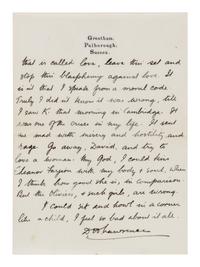 Greatham,
Pulborough,
Sussex.
that is called love, leave this set and
stop this blasphemy against love. It
isn't that I speak from a moral code
Truly I didn't know it was wrong, till
I saw K that morning in Cambridge. It
was one of the crises in my life. It sent
me mad with misery and hostility and
rage. Go away, David, and try to
love a woman. My God, I could kiss
Eleanor Farjeon with my body & soul, when
I think how good she is, in comparison
But the Oliviers, & such girls, are wrong.
I could sit and howl in a corner
like a child, I feel so bad about it all.
D H Lawrence